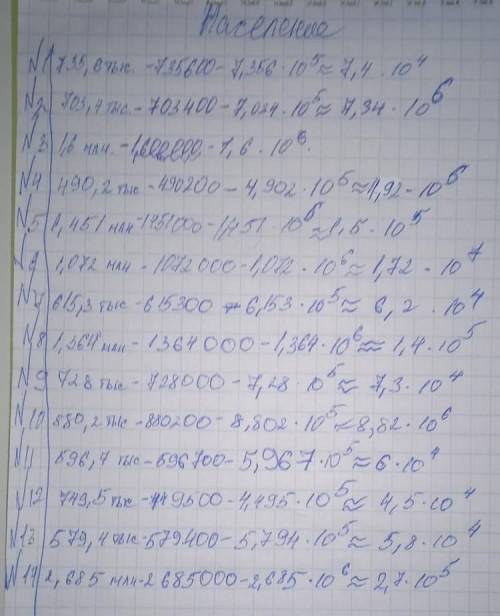 Население
N1 735,6 тыс. -735600-7,356·10⁵≈7,4·10⁴
N2 703,4 тыс. -703400-7,034·10⁵≈7,34·10⁶
N3 1,6 млн. - -1,6·10⁶.
N4 490,2 тыс -490200-4,902·10⁵≈4,92·10⁶
N5 1,451 млн -1451000-1,451·10⁶≈1,5·10⁵
N6 1,072 млн -1072000-1,072·10⁶≈1,72·10⁷
N7 615,3 тыс -615300-6,153·10⁵≈6,2·10⁴
N8 1,364 млн -1364000-1,364·10⁶≈1,4·10⁵
N9 728 тыс -728000-7,28·10⁵≈7,3·10⁴
N10 880,2 тыс -880200-8,802·10⁵≈8,82·10⁶
N11 596,7 тыс -596700-5,967·10⁵≈6·10⁴
N12 749,5 тыс -449500-4,495·10⁵≈4,5·10⁴
N13 579,4 тыс -579400-5,794·10⁵≈5,8·10⁴
N14 2,685 млн -2685000-2,685·10⁶≈2,7·10⁵